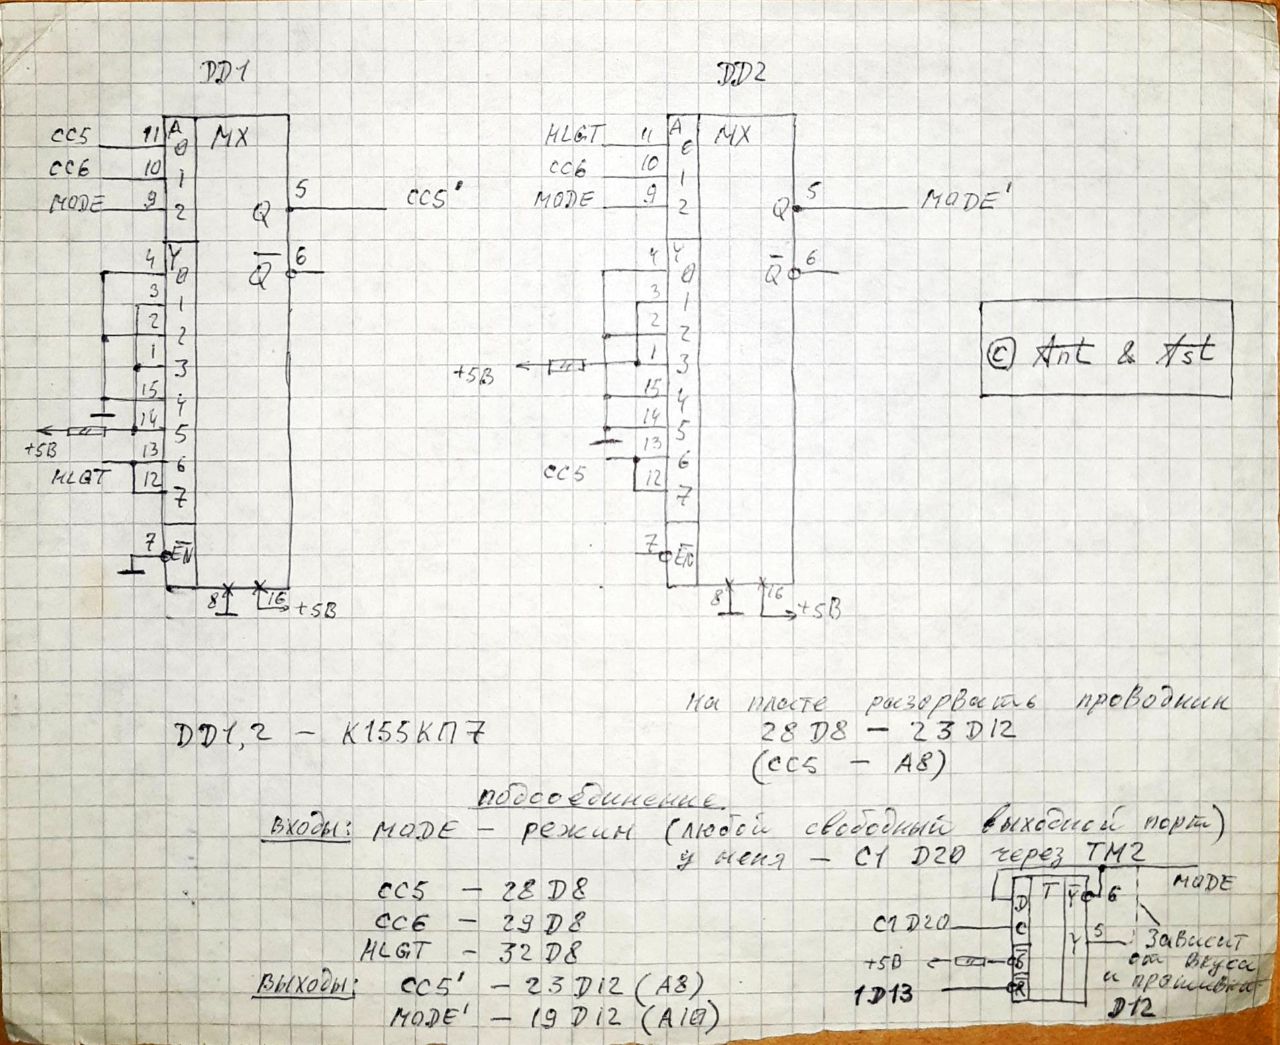 DD1
CC5 11 A 0 MX
CC6 10 1
MODE 9 2
Q 5 CC5'
Q 6
4 Y 0
3 1
2 2
1 3
15 4
14 5
+5В
13 6
HLGT
12 7
7 EN
8 16 +5В
DD2
HLGT 11 A 0 MX
CC6 10 1
MODE 9 2
Q 5 MODE'
Q 6
4 Y 0
3 1
2 2
1 3
+5В
15 4
14 5
13 6
CC5
12 7
7 EN
8 16 +5В
© Ant & Ast
На плате разорвать проводник
28 D8 — 23 D12
(CC5 — A8)
DD1,2 — К155КП7
подсоединение
Входы: MODE — режим (любой свободный выходной порт)
у меня — C1 D20 через ТМ2
CC5 — 28 D8
CC6 — 29 D8
HLGT — 32 D8
Выходы: CC5' — 23 D12 (A8)
MODE' — 19 D12 (A10)
D T Y 6 MODE
C1 D20 C
Y 5
+5В S
1 D13 R
Зависит
от вкуса
и прошивки
D12